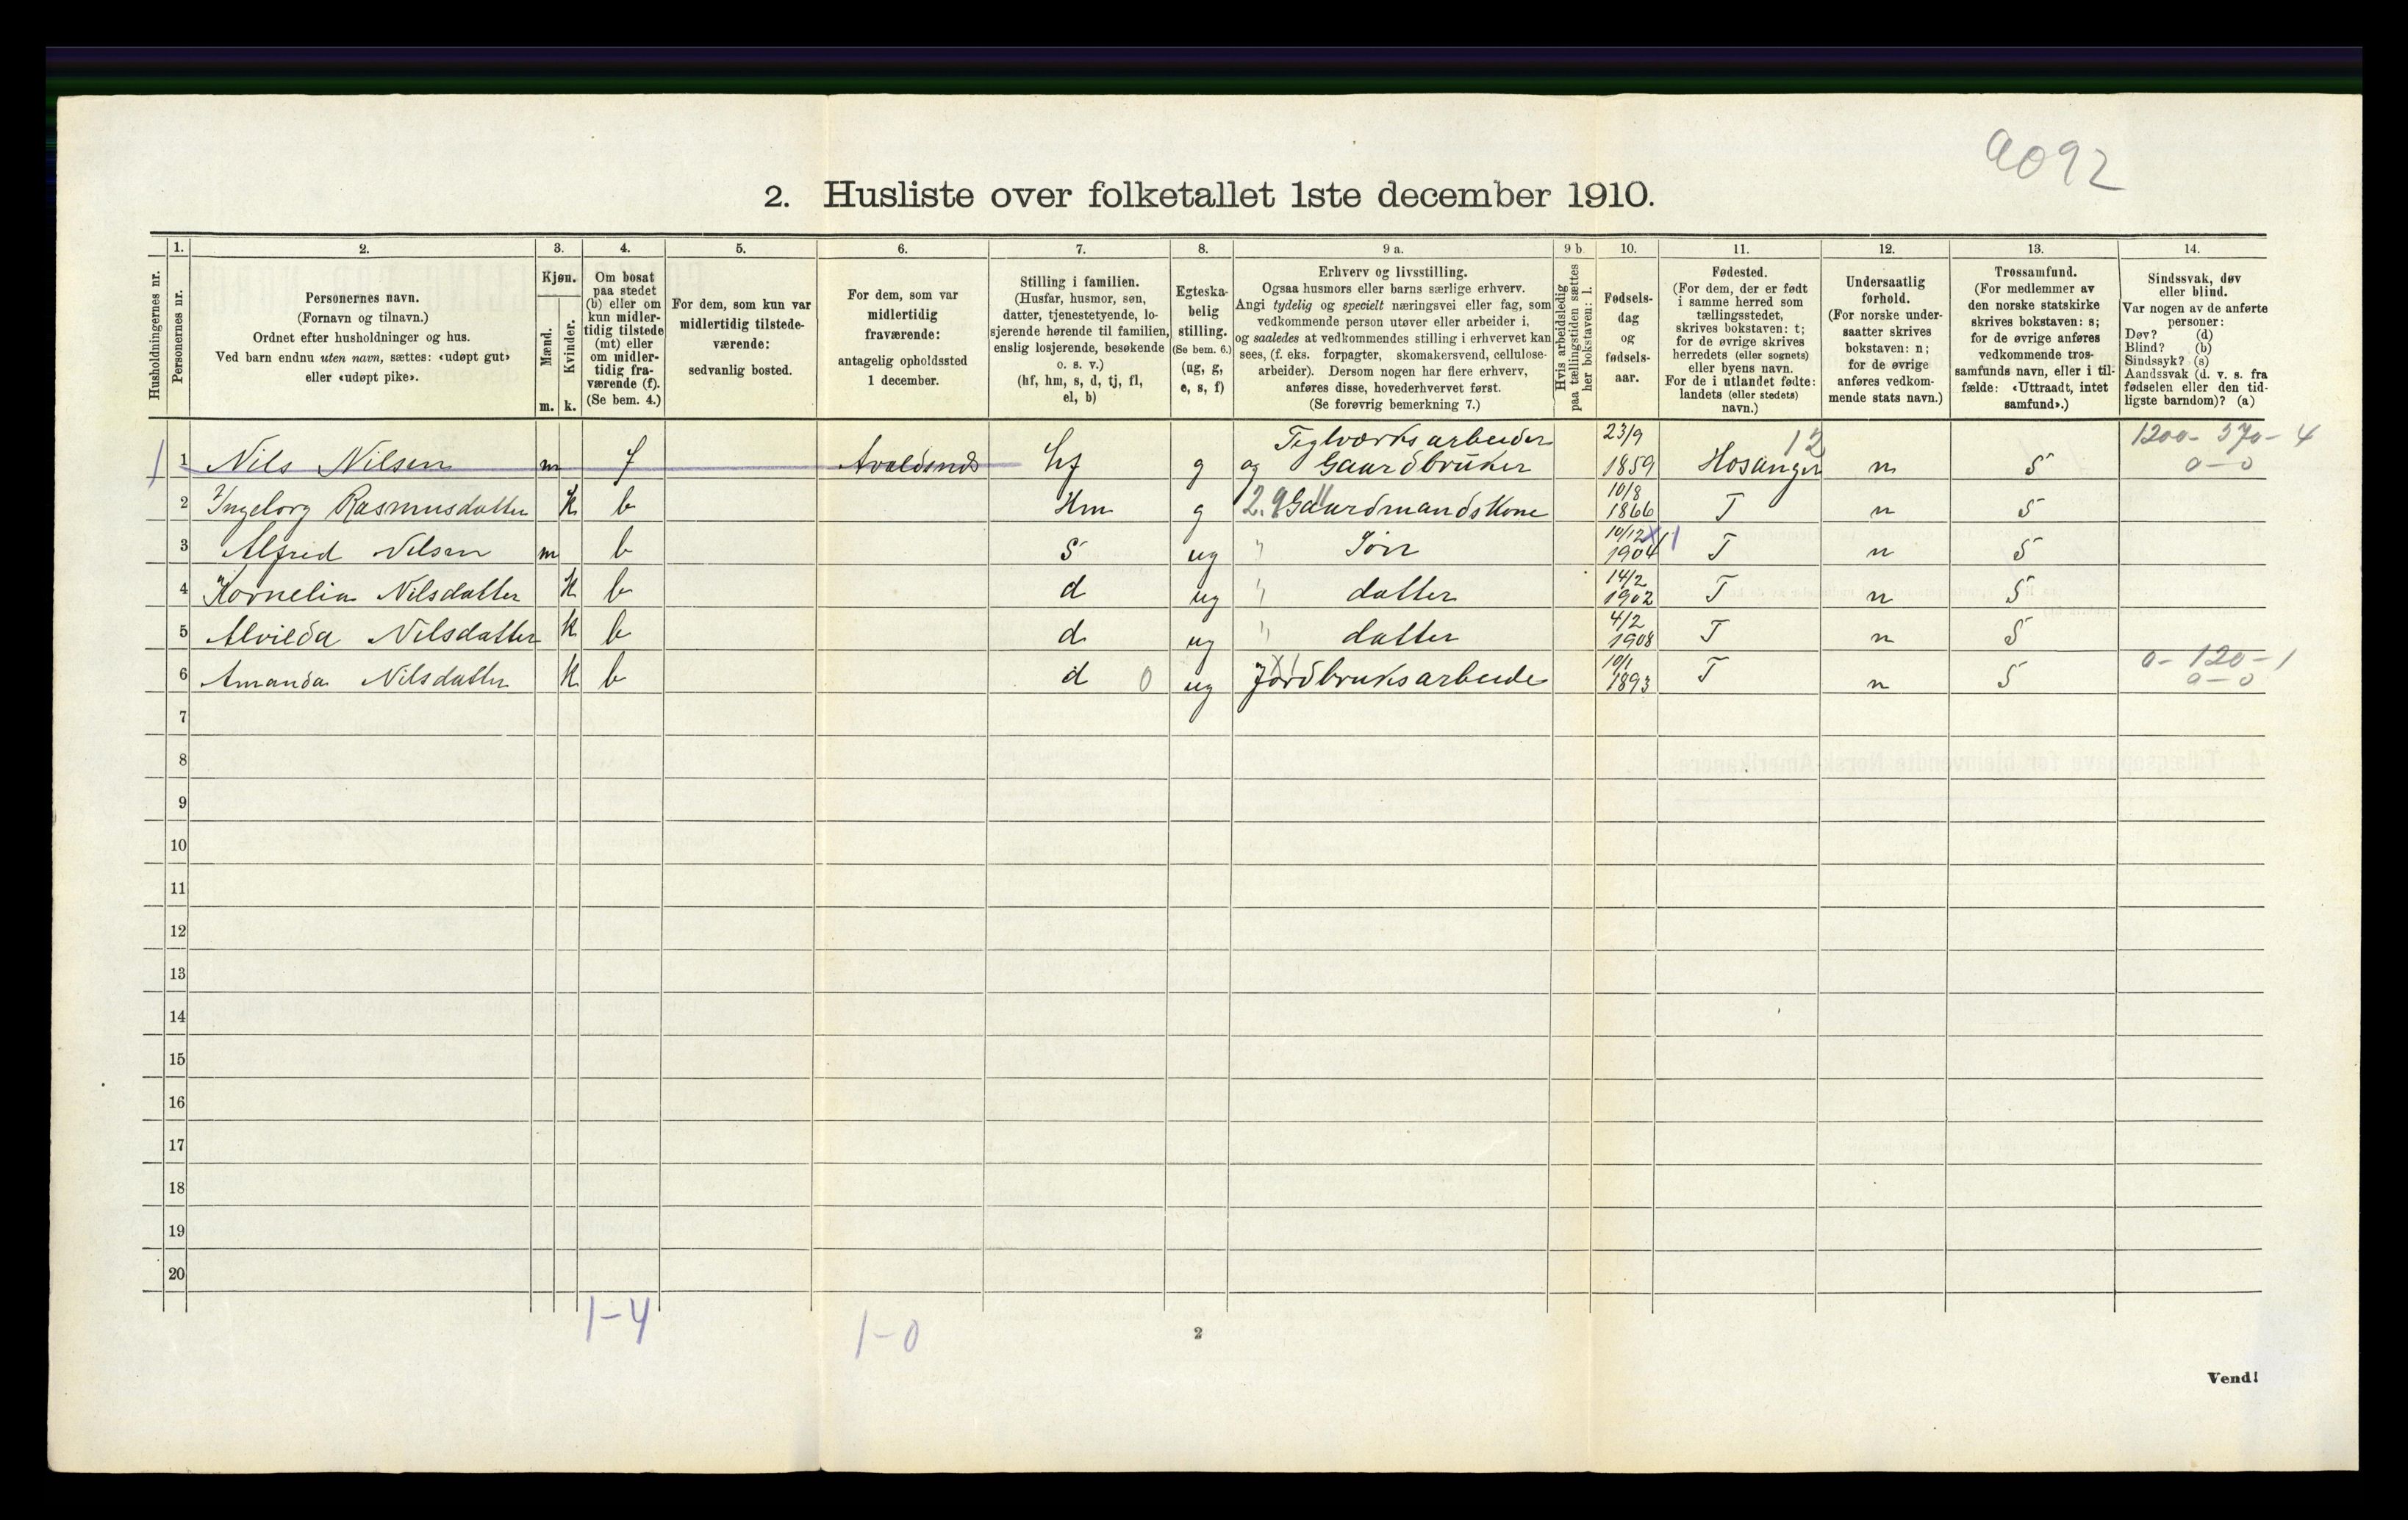 9092
2. Husliste over folketallet 1ste december 1910.
Husholdningernes nr.
1. Personernes nr.
2. Personernes navn. (Fornavn og tilnavn.) Ordnet efter husholdninger og hus. Ved barn endnu uten navn, sættes: «udøpt gut» eller «udøpt pike».
3. Kjøn. Mænd. m. Kvinder. k.
4. Om bosat paa stedet (b) eller om kun midlertidig tilstede (mt) eller om midlertidig fraværende (f). (Se bem. 4.)
5. For dem, som kun var midlertidig tilstedeværende: sedvanlig bosted.
6. For dem, som var midlertidig fraværende: antagelig opholdssted 1 december.
7. Stilling i familien. (Husfar, husmor, søn, datter, tjenestetyende, losjerende hørende til familien, enslig losjerende, besøkende o. s. v.) (hf, hm, s, d, tj, fl, el, b)
8. Egteskabelig stilling. (Se bem. 6.) (ug, g, e, s, f)
9 a. Erhverv og livsstilling. Ogsaa husmors eller barns særlige erhverv. Angi tydelig og specielt næringsvei eller fag, som vedkommende person utøver eller arbeider i, og saaledes at vedkommendes stilling i erhvervet kan sees, (f. eks. forpagter, skomakersvend, cellulosearbeider). Dersom nogen har flere erhverv, anføres disse, hovederhvervet først. (Se forøvrig bemerkning 7.)
9 b. Hvis arbeidsledig paa tællingstiden sættes her bokstaven: l.
10. Fødselsdag og fødselsaar.
11. Fødested. (For dem, der er født i samme herred som tællingsstedet, skrives bokstaven: t; for de øvrige skrives herredets (eller sognets) eller byens navn. For de i utlandet fødte: landets (eller stedets) navn.)
12. Undersaatlig forhold. (For norske undersaatter skrives bokstaven: n; for de øvrige anføres vedkommende stats navn.)
13. Trossamfund. (For medlemmer av den norske statskirke skrives bokstaven: s; for de øvrige anføres vedkommende trossamfunds navn, eller i tilfælde: «Uttraadt, intet samfund».)
14. Sindssvak, døv eller blind. Var nogen av de anførte personer: Døv? (d) Blind? (b) Sindssyk? (s) Aandssvak (d. v. s. fra fødselen eller den tidligste barndom)? (a)
1 1 Nils Nilsen m f Avaldsnes hf g Teglværksarbeider og Gaardbruker 23/9 1859 Hosanger 12 n S 1200- 370- 4 0-0
2 Ingeborg Rasmusdatter k b Hm g 2.9 Gaardmandskone 10/8 1866 T n S
3 Alfred Nilsen m b S ug " Sön 10/12 1904 T n S
4 Kornelia Nilsdatter k b d ug " datter 14/2 1902 T n S
5 Alvilda Nilsdatter k b d ug " datter 4/2 1908 T n S
6 Amanda Nilsdatter k b d 0 ug Jordbruksarbeide 10/1 1893 T n S 0- 120- 1 0-0
7
8
9
10
11
12
13
14
15
16
17
18
19
20
1-4
1-0
2
Vend!